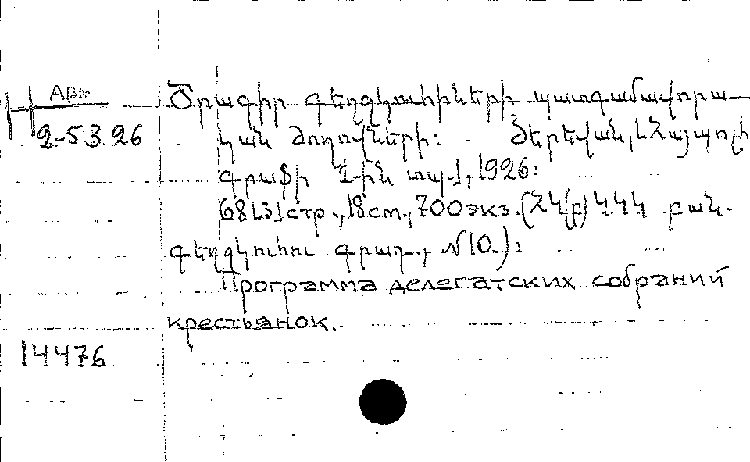 Арм
2-53.26
Ծրագիր գեղջկուհիների պատգամավորա-
կան ժողովների: Յերեվան, Հայպոլի
գրաֆի 2-ին տպ., 1926:
68[3] стр., 18 cm., 700 экз. (ՀԿ(բ)Կ ԿԿ բան.
գեղջկուհու գրադ., N10.):
Программа делегатских собраний
крестьянок.
14476